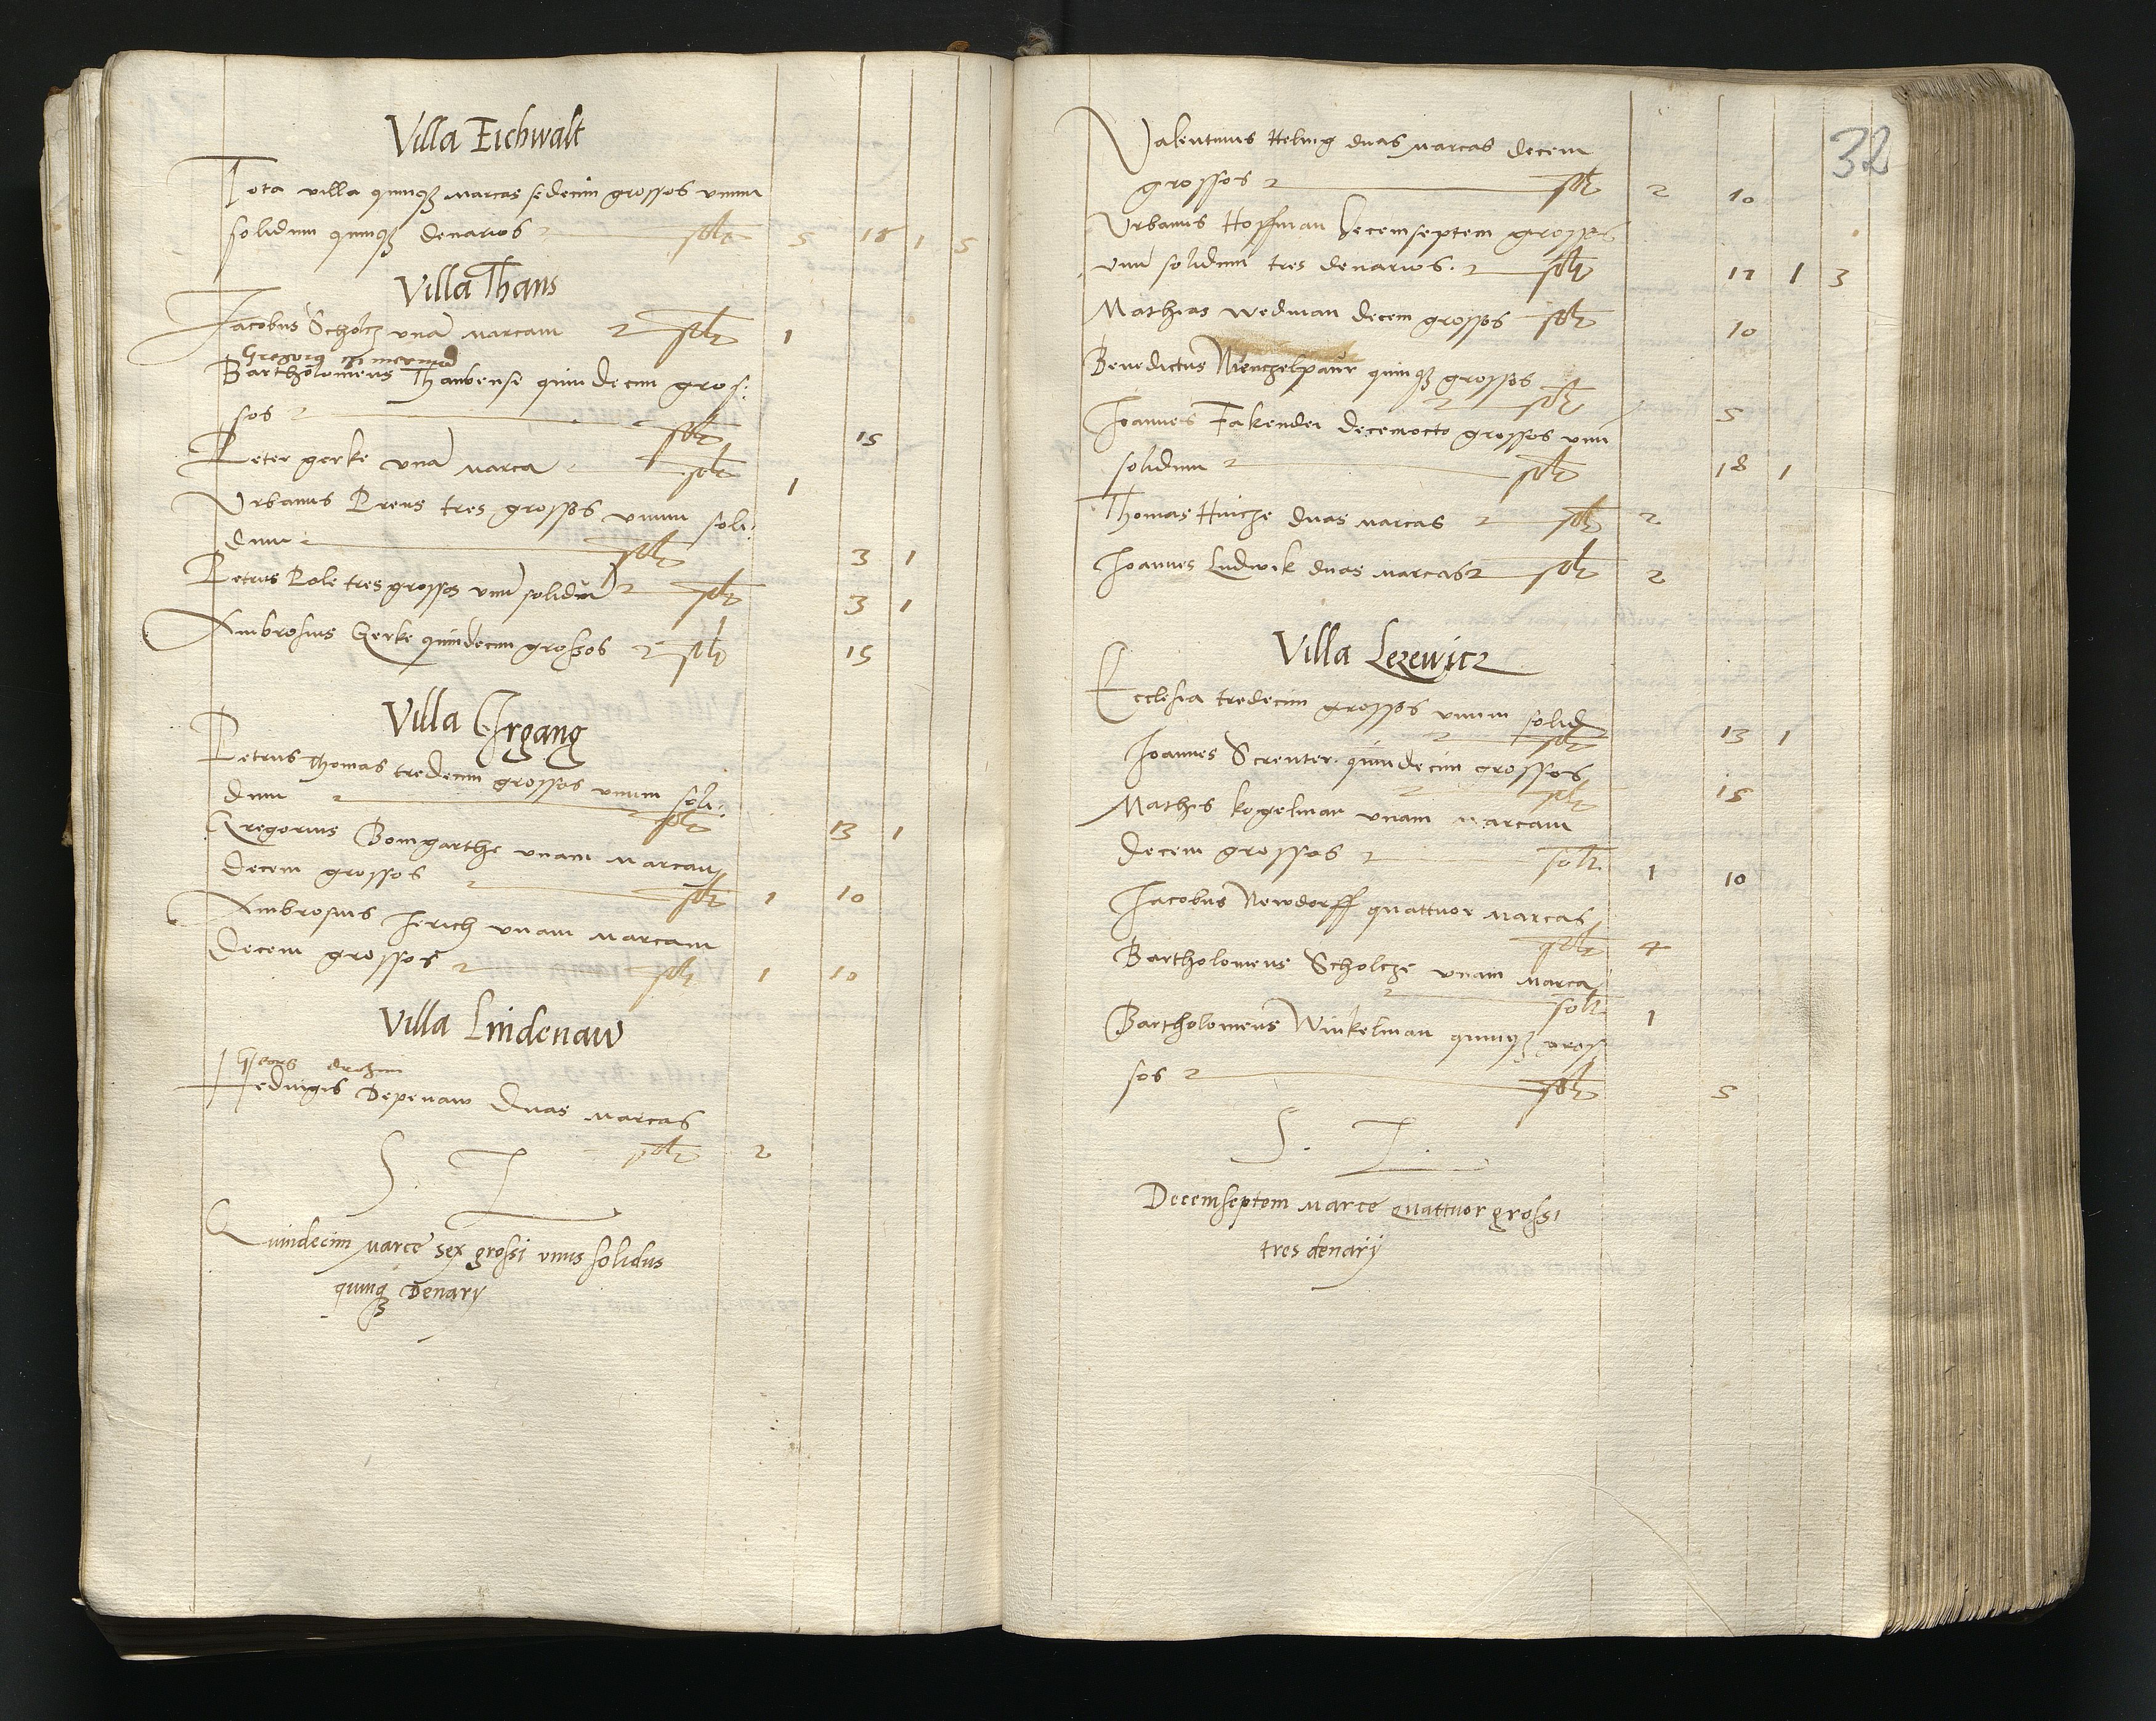 Villa Eichwalt
Tota villa quinqȝ marcas sedecim grossos unum
solidum quinqȝ denarios solt 5 16 1 5
Villa Thans
Jacobus Scholcz unā marcam solt 1
Gregorius
Bartholomeus Thawbense quindecim gros:
sos solt 15
Peter gerke unā marcā solt 1
Urbanus Preus tres grossos unum soli:
dum solt 3 1
Petrus Pole tres grossos unū solidū solt 3 1
Ambrosius Gerke quindecim grossos solt 15
Villa Irgang
Petrus Thomas tredecim grossos unum soli:
dum solt 13 1
Gregorius Bomgarthe unam marcam
decem grossos solt 1 10
Ambrosius Jerich unam marcam
decem grossos solt 1 10
Villa Lindenaw
Georg
Hedwigis Depenaw duas marcas
solt 2
S. L
Quindecim marce sex grossi unus solidus
quinqȝ denarij
32
Valentinus Helwig duas marcas decem
grossos solt 2 10
Urbanus Hoffman decemseptem grossos
unū solidum tres denarios. solt 17 1 3
Mathias wedman decem grossos solt 10
Benedictus Wenczelpaur quinqȝ grossos
solt 5
Joannes Fakendei decemocto grossos unū
solidum solt 18 1
Thomas Hincze duas marcas solt 2
Joannes Ludwik duas marcas solt 2
Villa Lezewicz
Ecclesia tredecim grossos unum solid
solt 13 1
Joannes Screuter quindecim grossos
solt 15
Mathis kogelman unam marcam
decem grossos solt 1 10
Jacobus Newdorff quattuor marcas
solt 4
Bartholomeus Scholcze unam marcā
solt 1
Bartholomeus Winkelman quinqȝ gros
sos solt 5
S. L.
Decemseptem marce quattuor grossi
tres denarij